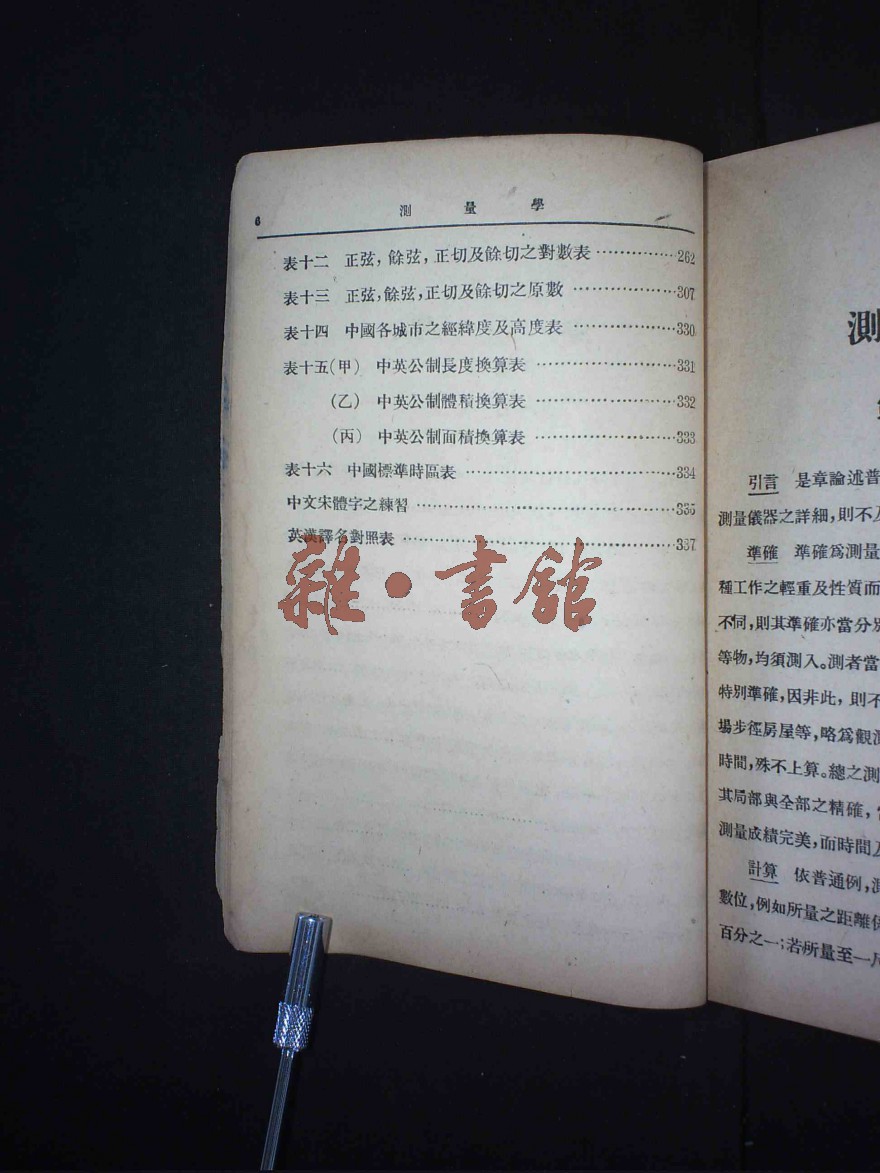 6 測量學
表十二 正弦，餘弦，正切及餘切之對數表 ……………262
表十三 正弦，餘弦，正切及餘切之原數 ………………307
表十四 中國各城市之經緯度及高度表 ………………330
表十五（甲） 中英公制長度換算表 ……………………331
（乙） 中英公制體積換算表 ……………………332
（丙） 中英公制面積換算表 ……………………333
表十六 中國標準時區表 ………………………………334
中文宋體字之練習 ………………………………………335
英漢譯名對照表 …………………………………………337
雜·書館
測
引言 是章論述普
測量儀器之詳細，則不
準確 準確爲測量
種工作之輕重及性質而
不同，則其準確亦當分別
等物，均須測入。測者當
特別準確，因非此，則不
場步徑房屋等，略爲觀測
時間，殊不上算。總之測
其局部與全部之精確，
測量成績完美，而時間
計算 依普通例，測
數位，例如所量之距離
百分之一；若所量至一